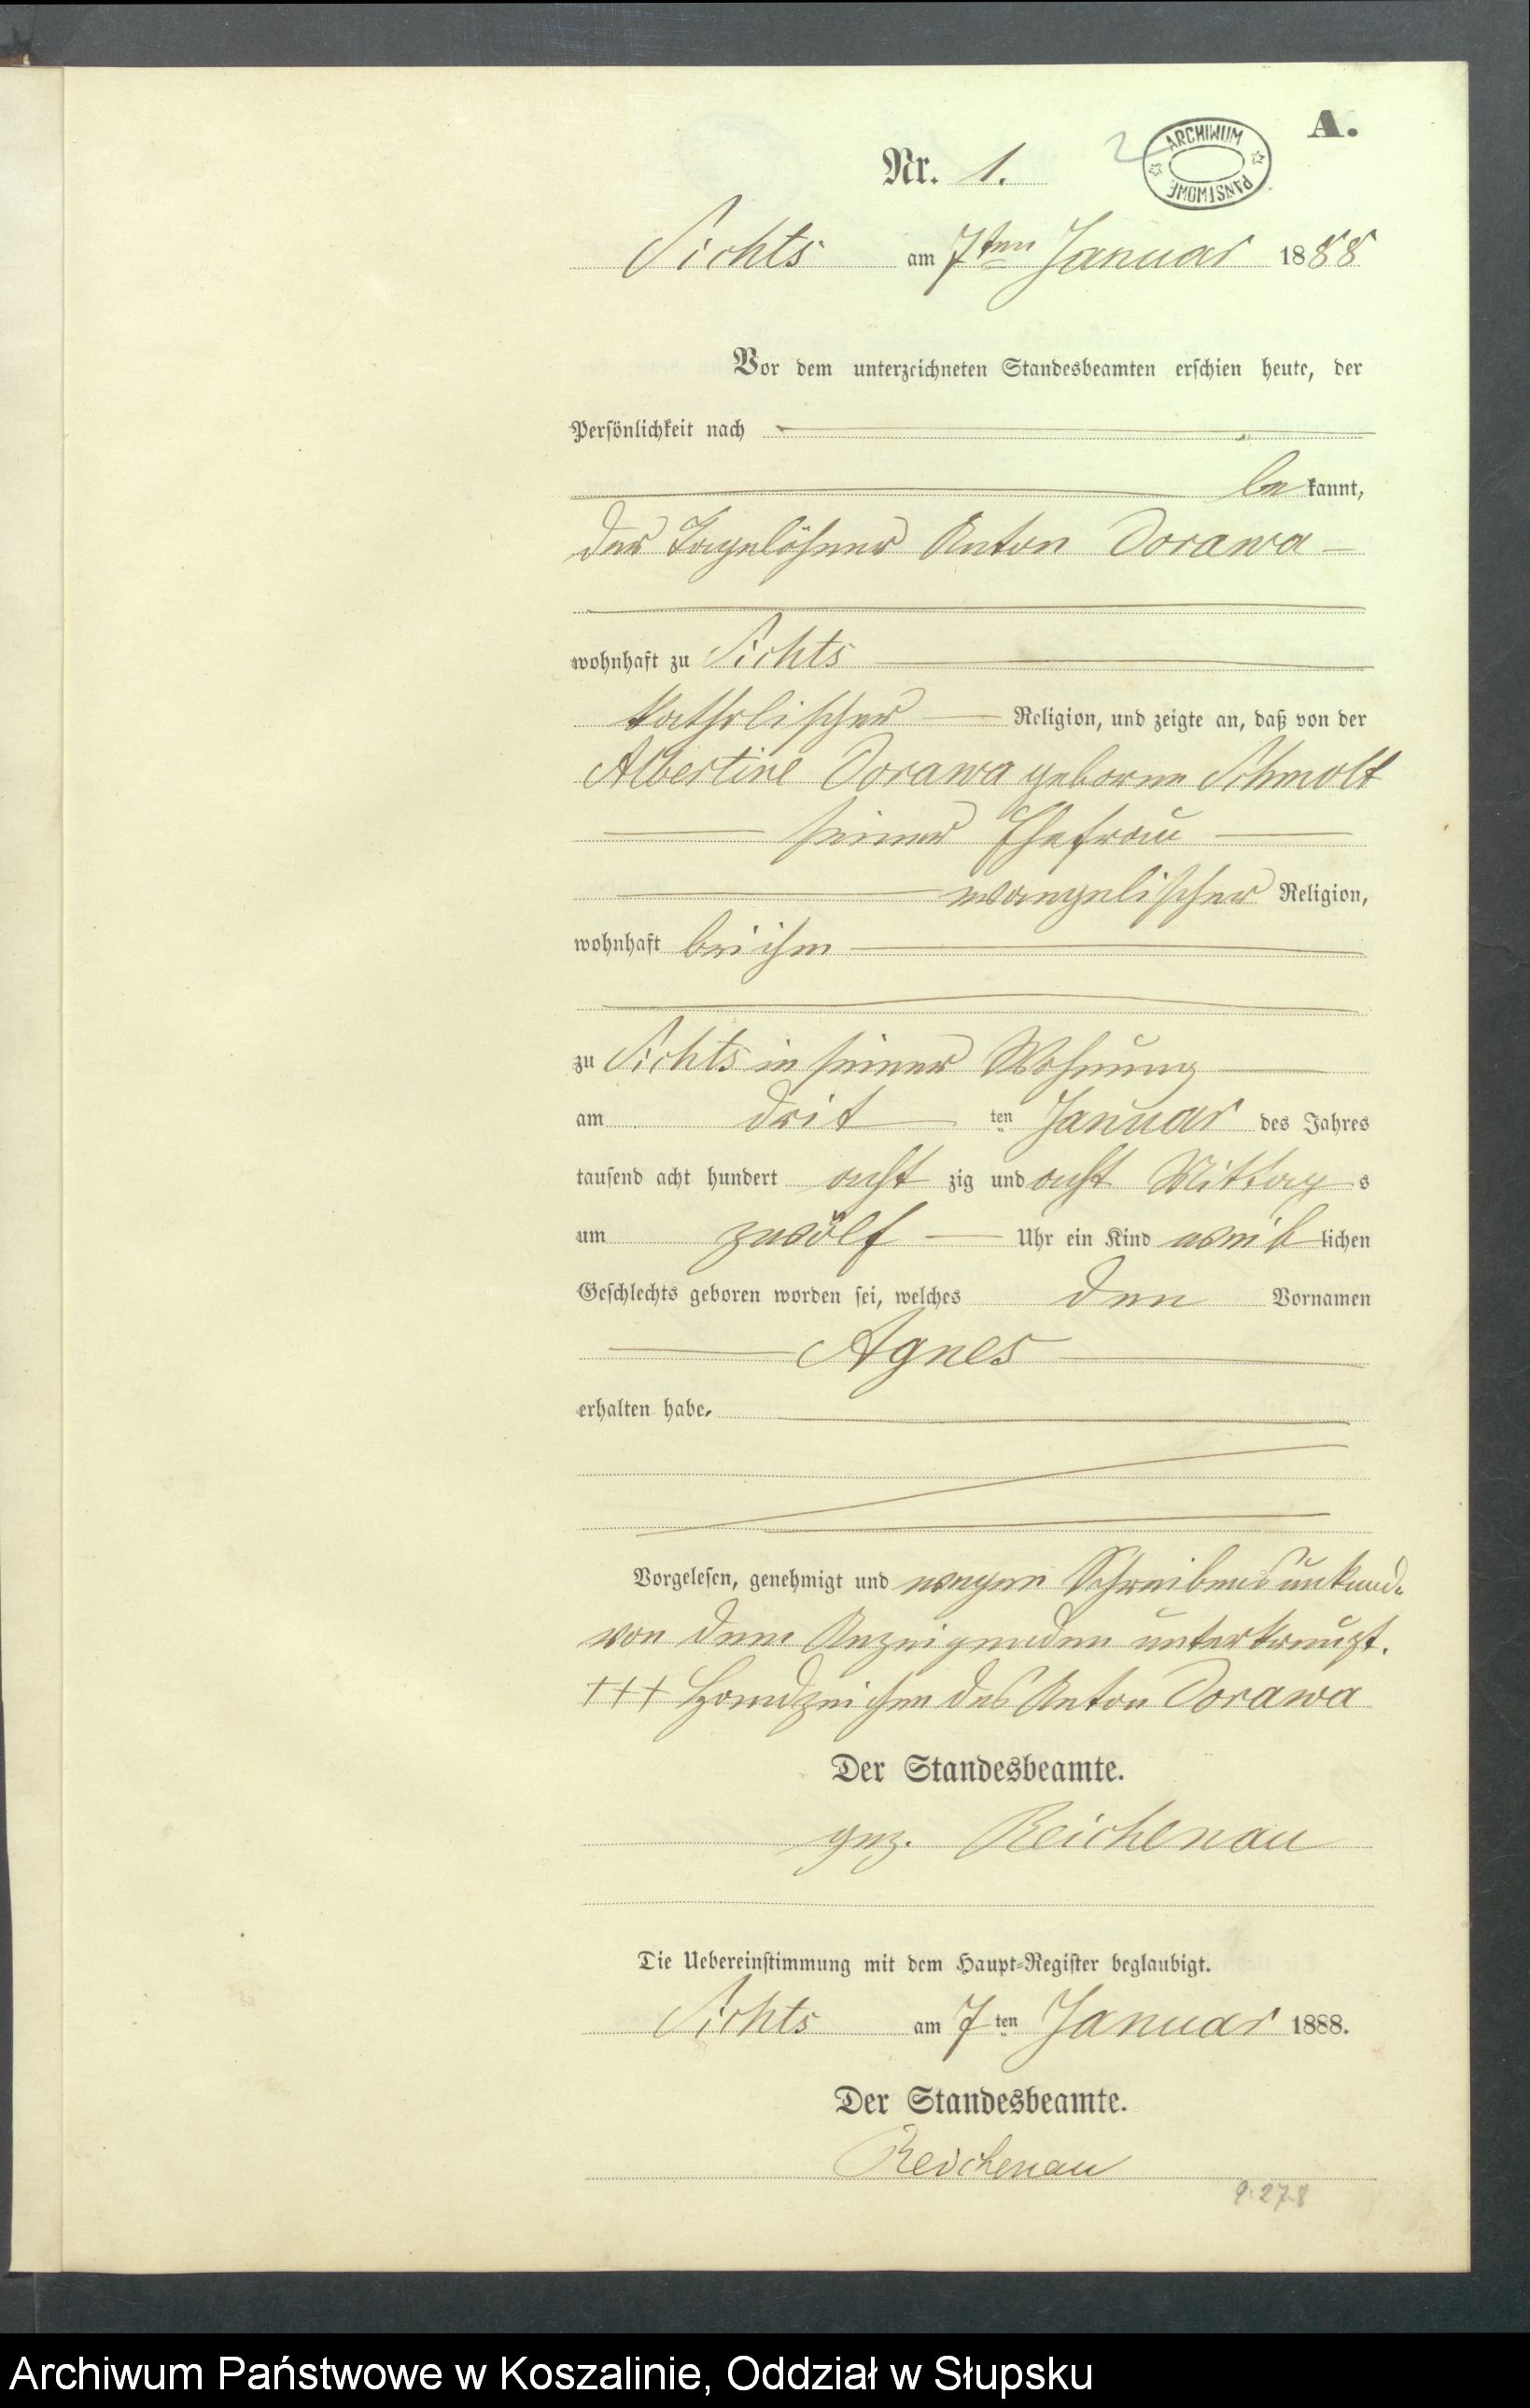 A.
2
ARCHIWUM PAŃSTWOWE
Nr. 1.
Sichts am 7ten Januar 1888
Vor dem unterzeichneten Standesbeamten erschien heute, der
Persönlichkeit nach
bekannt,
der Tagelöhner Anton Dorawa
wohnhaft zu Sichts
katholischer Religion, und zeigte an, daß von der
Albertine Dorawa geborne Schmolt
seiner Ehefrau
evangelischer Religion,
wohnhaft bei ihm
zu Sichts in seiner Wohnung
am dritten Januar des Jahres
tausend acht hundert acht zig und acht Mittags
um zwölf Uhr ein Kind weiblichen
Geschlechts geboren worden sei, welches den Vornamen
Agnes
erhalten habe.
Vorgelesen, genehmigt und wegen Schreibensunkund.
von dem Anzeigenden unterkreuzt.
+++ Handzeichen des Anton Dorawa
Der Standesbeamte.
gez. Reichenau
Die Uebereinstimmung mit dem Haupt-Register beglaubigt.
Sichts am 7ten Januar 1888.
Der Standesbeamte.
Reichenau
9.278
Archiwum Państwowe w Koszalinie, Oddział w Słupsku